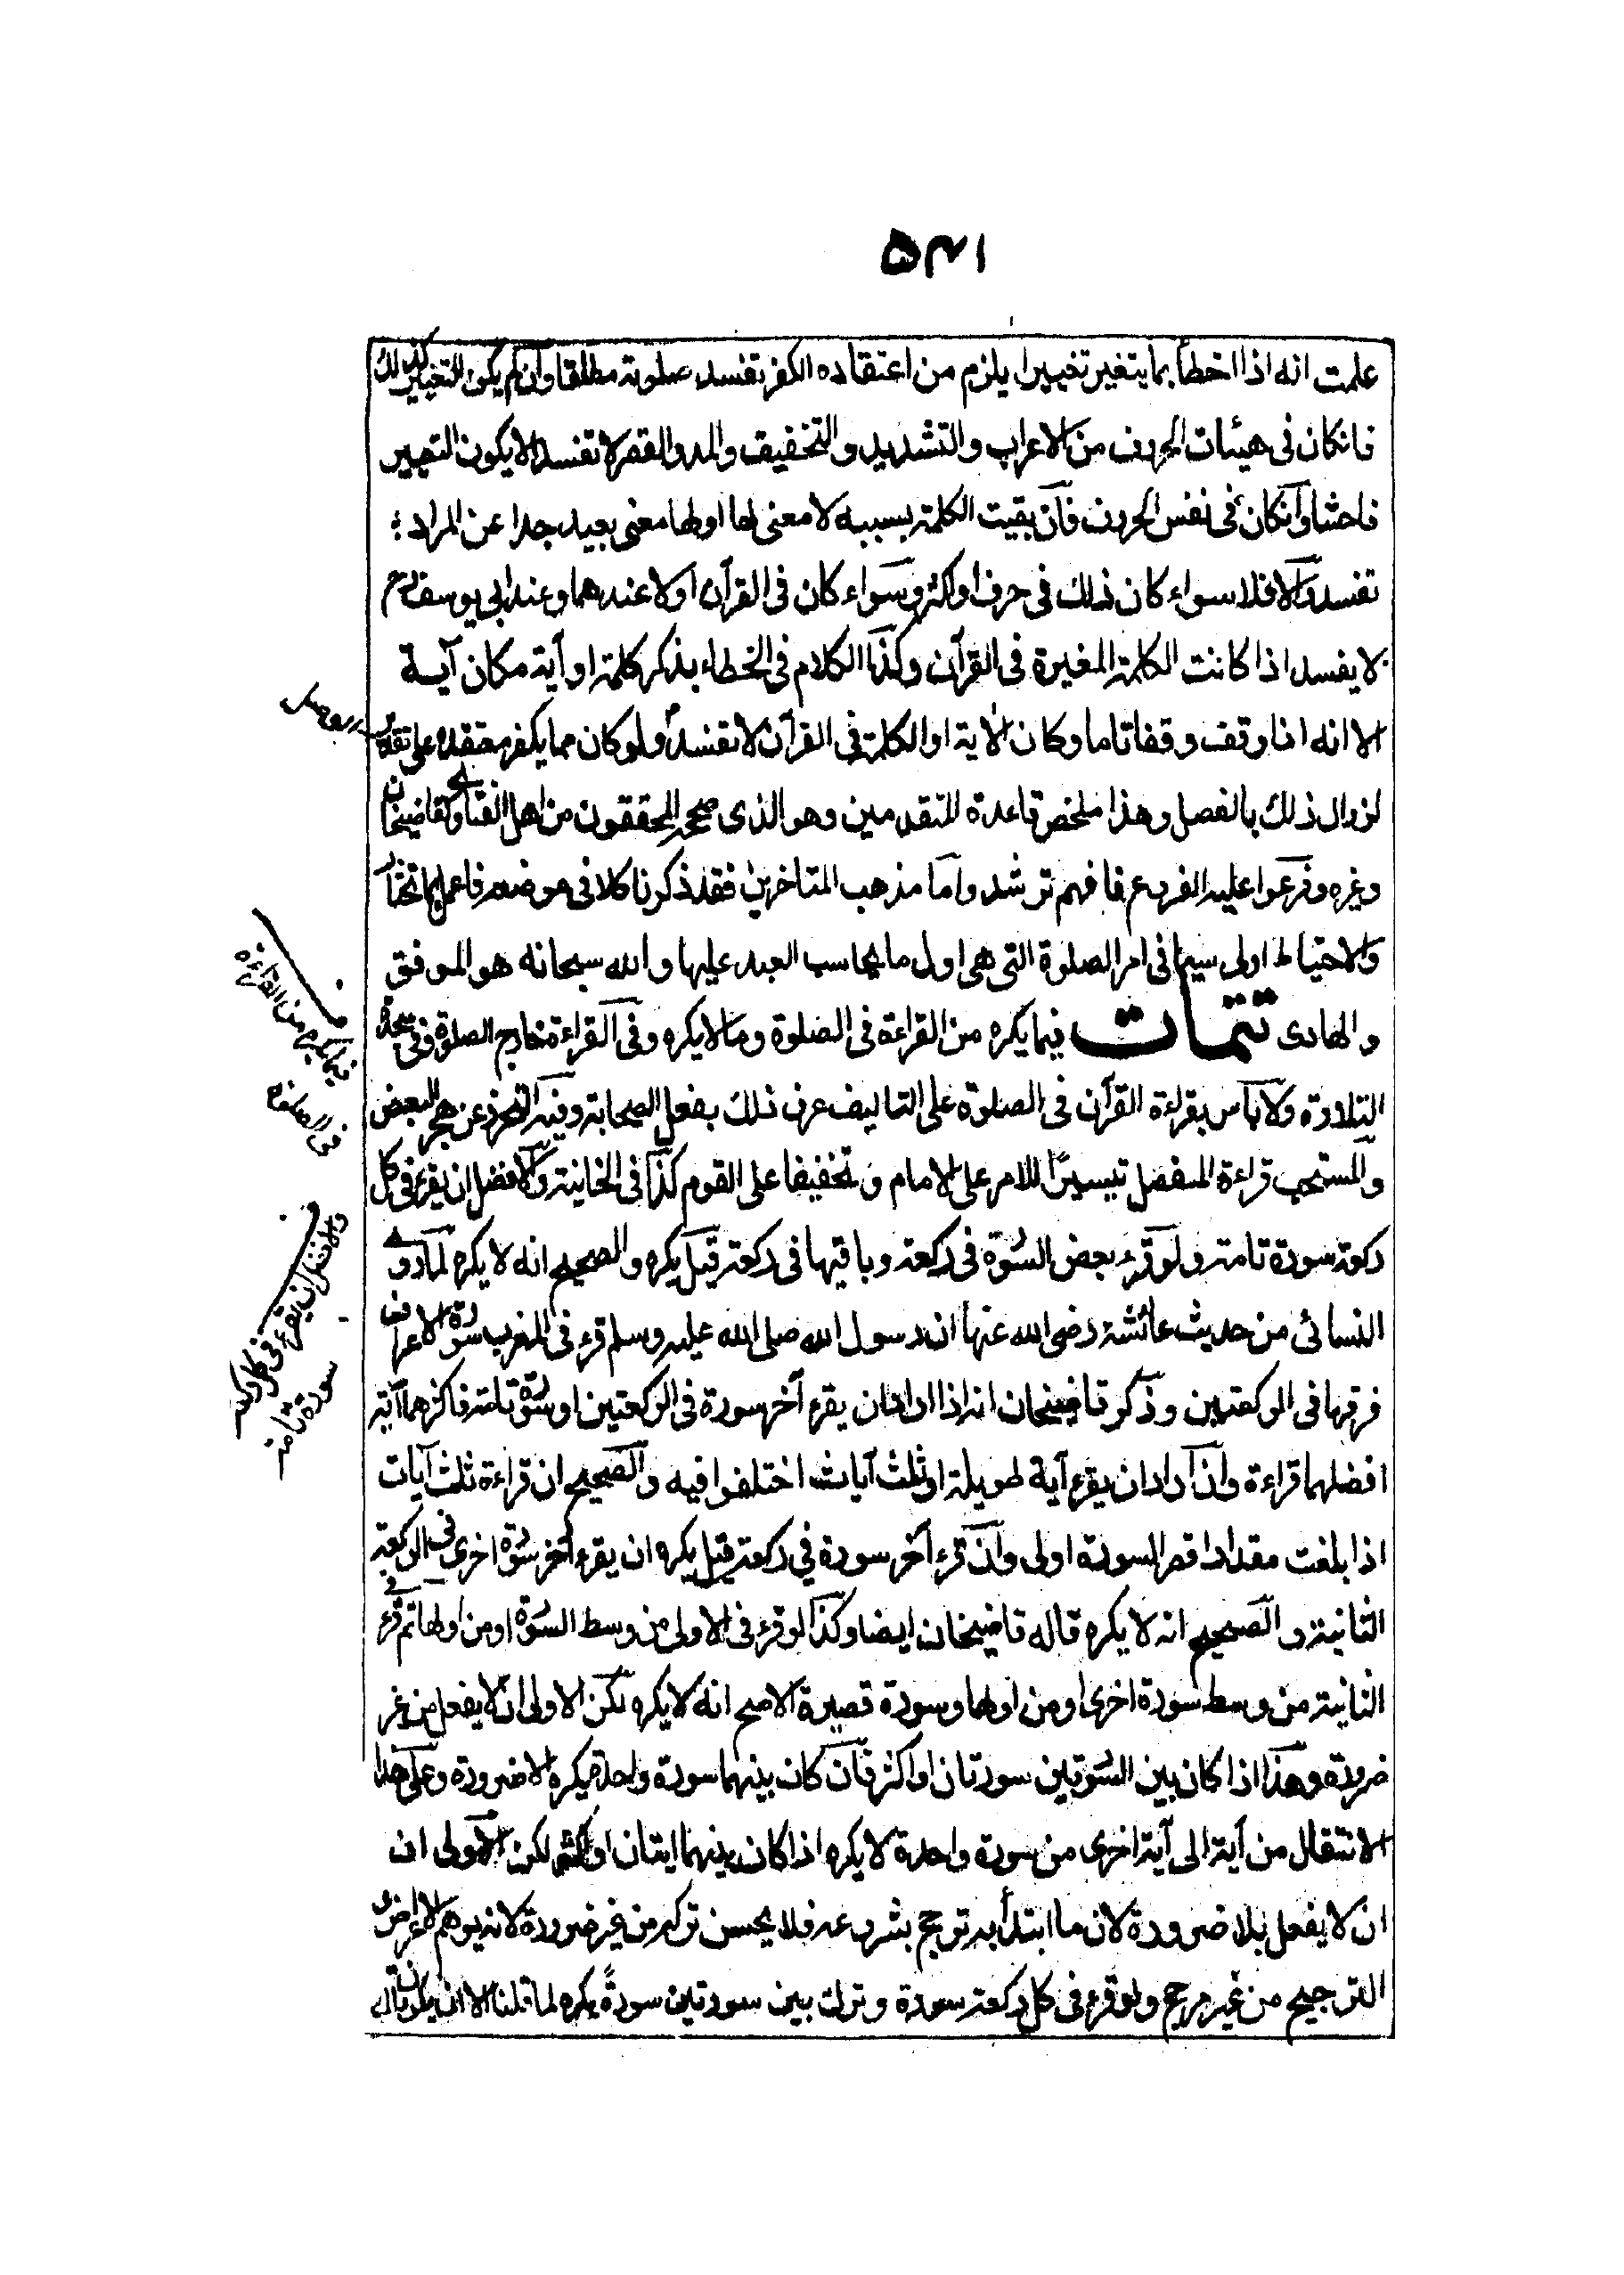 علمت انه اذا اخطأ بما يتغير تغييرا يلزم من اعتقاده الكفر تفسد صلوته مطلقا وان لم يكن التغيير كذلك
فانكان فى هيئات الحروف من الاعراب والتشديد والتخفيف والمد والقصر لا تفسد الا يكون التغيير
فاحشا وانكان فى نفس الحروف فان بقيت الكلمة بسببه لا معنى لها او لها معنى بعيد جدا عن المراد
تفسد والا فلا سواء كان ذلك فى حرف او اكثر وسواء كان فى القرآن اولا عندهما وعند ابى يوسف رح
لا يفسد اذا كانت الكلمة المغيرة فى القرآن وكذا الكلام فى الخطاء بذكر كلمة او آية مكان آية
الا انه اذا وقف وقفا تاما وكان الاية او الكلمة فى القرآن لا تفسد ولو كان مما يكفر معتقده على تقدير الوصل
لزوال ذلك بالفصل وهذا ملخص قاعدة المتقدمين وهو الذى صححه المحققون من اهل الفتاوى كقاضيخان
وغيره وفرعوا عليه الفروع فافهم ترشد واما مذهب المتاخرين فقد ذكرنا كلا فى موضعه فاعمل بما تختار
والاحتياط اولى سيما فى امر الصلوة التى هى اول ما يحاسب العبد عليها والله سبحانه هو الموفق
والهادى تتمات فيما يكره من القراءة فى الصلوة وما لا يكره وفى القراءة خارج الصلوة وفى سجدة
التلاوة ولا باس بقراءة القرآن فى الصلوة على التاليف عرف ذلك بفعل الصحابة وفيه التحرز عن هجر البعض
والمستحب قراءة المفصل تيسيرًا للامر على الامام وتخفيفا على القوم كذا فى الخانية والافضل ان يقرء فى كل
ركعة سورة تامة ولو قرء بعض السورة فى ركعة وباقيها فى ركعة قيل يكره والصحيح انه لا يكره لما روى
النسائى من حديث عائشة رضى الله عنها ان رسول الله صلى الله عليه وسلم قرء فى المغرب سورة الاعراف
فرقها فى الركعتين وذكر قاضيخان انه اذا اراد ان يقرء آخر سورة فى الركعتين او سورة تامة فاكثرهما آية
افضلهما قراءة واذا اراد ان يقرء آية طويلة او ثلث آيات اختلفوا فيه والصحيح ان قراءة ثلث آيات
اذا بلغت مقدار اقصر السورة اولى وان قرء آخر سورة فى ركعة قيل يكره ان يقرء آخر سورة اخرى فى الركعة
الثانية والصحيح انه لا يكره قاله قاضيخان ايضا وكذا لو قرء فى الاولى من وسط السورة او من اولها ثم قرء فى
الثانية من وسط سورة اخرى او من اولها وسورة قصيرة الاصح انه لا يكره لكن الاولى ان لا يفعل من غير
ضرورة وهذا اذا كان بين السورتين سورتان او اكثر فان كان بينهما سورة واحدة يكره الا ضرورة وعلى هذا
الانتقال من آية الى آية اخرى من سورة واحدة لا يكره اذا كان بينهما ايتان او اكثر لكن الاولى ان
ان لا يفعل بلا ضرورة لان ما ابتدأ به ترجح بشروعه فلا يحسن تركه من غير ضرورة لانه يوهم الاعراض و
الترجيح من غير مرجح ولو قرء فى كل ركعة سورة وترك بين سورتين سورةً يكره لما قلنا الا ان يكون تاليه
فيما يكره من القراءة
فى الصلوة
والافضل ان يقرء فى كل ركعة
سورة تامة